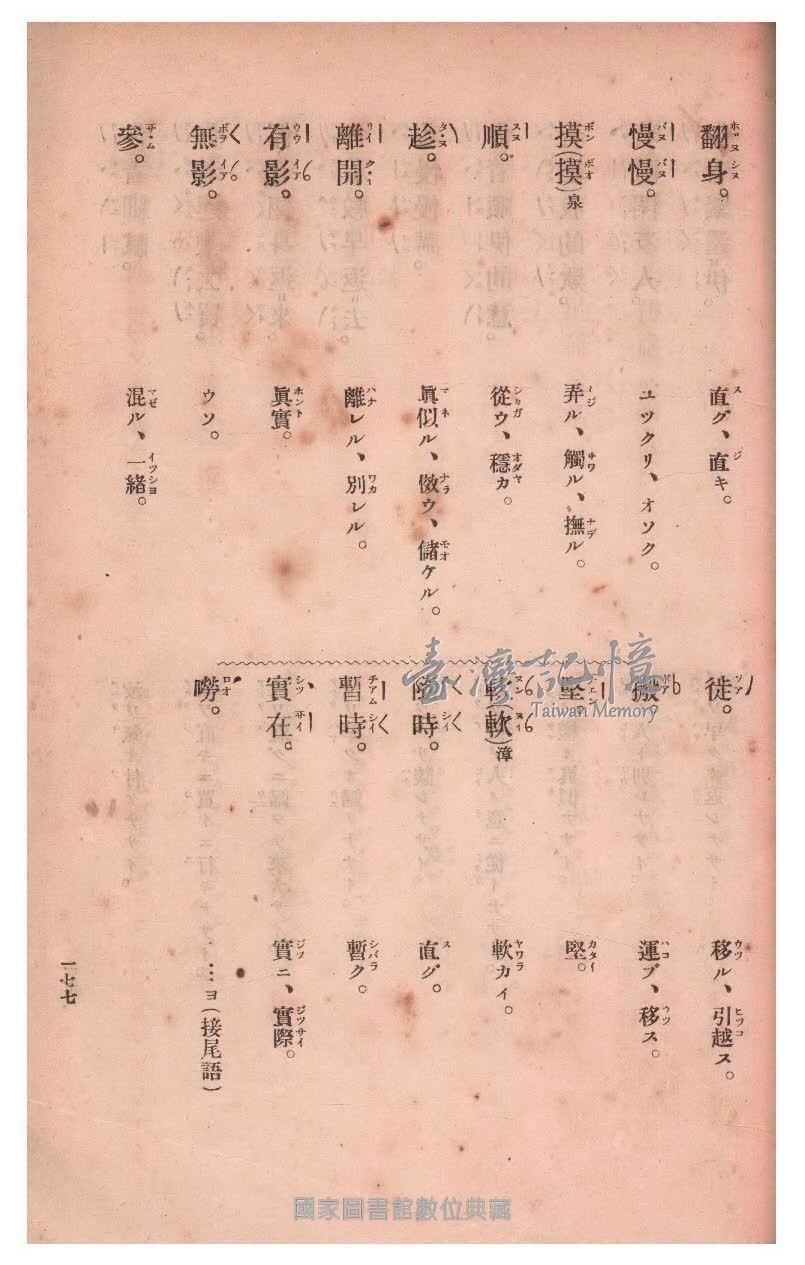 翻身。 直グ、直キ。
慢慢。 ユツクリ、オソク。
摸(摸)泉 弄ル、觸ル、撫ル。
順。 從ウ、穩カ。
趁。 眞似ル、傚ウ、儲ケル。
離開。 離レル、別レル。
有影。 眞實。
無影。 ウソ。
參。 混ル、一緒。
徙。 移ル、引越ス。
搬。 運ブ、移ス。
堅。 堅。
軟(軟)漳 軟カイ。
隨時。 直グ。
暫時。 暫ク。
實在。 實ニ、實際。
嘮。 …ヨ(接尾語)
一七七
臺灣記憶
Taiwan Memory
國家圖書館數位典藏